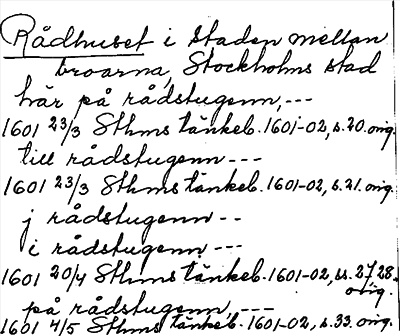 Rådhuset i staden mellan
broarna, Stockholms stad
här på rådstugenn, ---
1601 23/3 Sthms tänkeb. 1601-02, s. 20. orig.
till rådstugenn ---
1601 23/3 Sthms tänkeb. 1601-02, s. 21. orig.
j rådstugenn --
i rådstugenn ---
1601 20/4 Sthms tänkeb. 1601-02, ss. 27 28.
orig.
på rådstugenn, ---
1601 4/5 Sthms tänkeb. 1601-02, s. 33. orig.